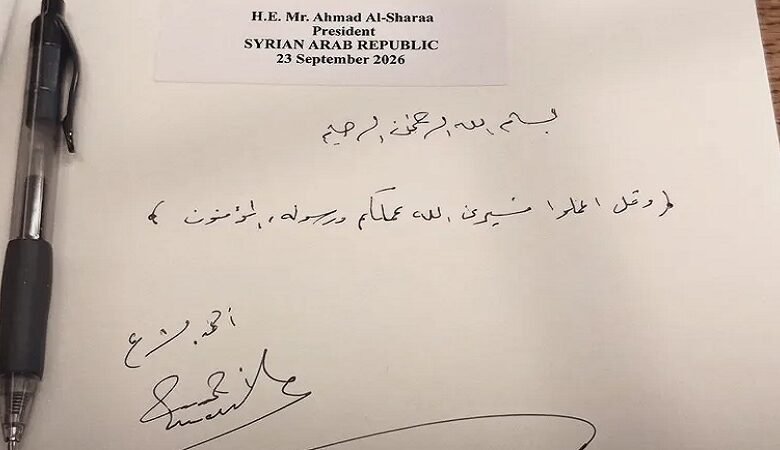 H.E. Mr. Ahmad Al-Sharaa
President
SYRIAN ARAB REPUBLIC
23 September 2026
بسم الله الرحمن الرحيم
﴿وقل اعملوا فسيرى الله عملكم ورسوله والمؤمنون﴾
أحمد الشرع